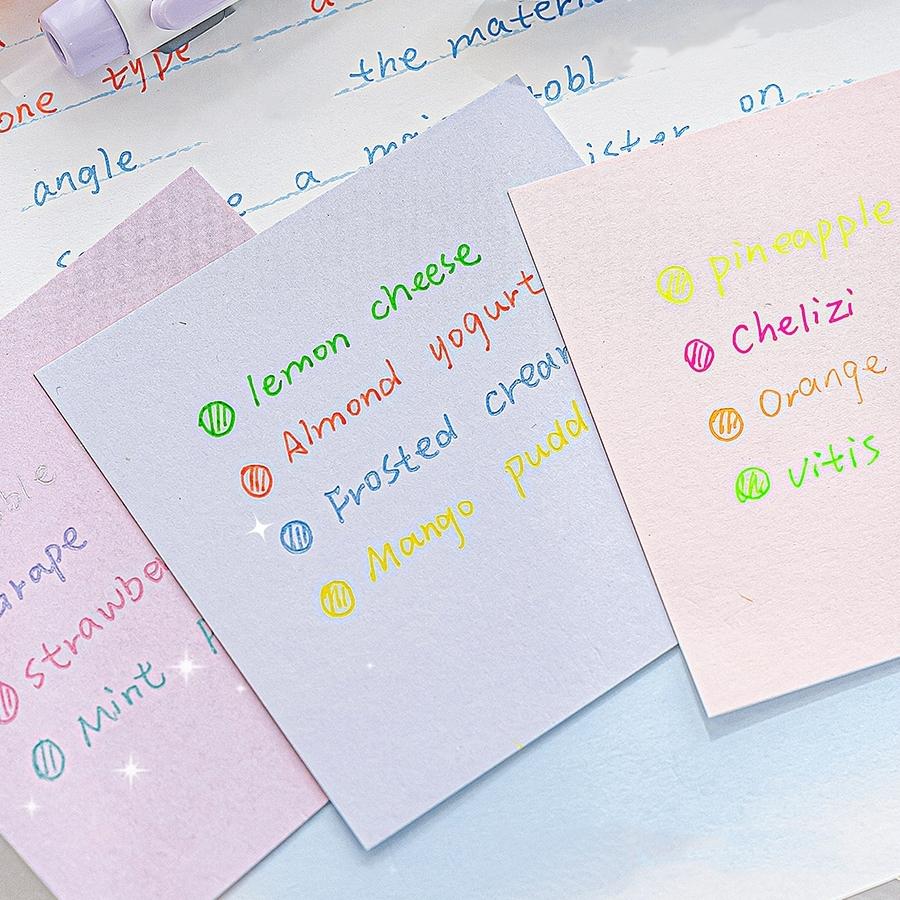 one type
the materi
angle
a
on
lemon cheese
Almond yogurt
Frosted cream
Mango pudd
pineapple
Chelizi
Orange
vitis
ble
grape
strawbe
Mint